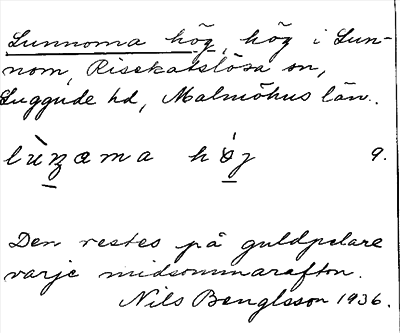 Lunnoma hög, hög i Lun-
nom, Risekatslösa sn,
Luggude hd, Malmöhus län.
lùnama høj 9.
Den restes på guldpelare
varje midsommarafton.
Nils Bengtsson 1936.